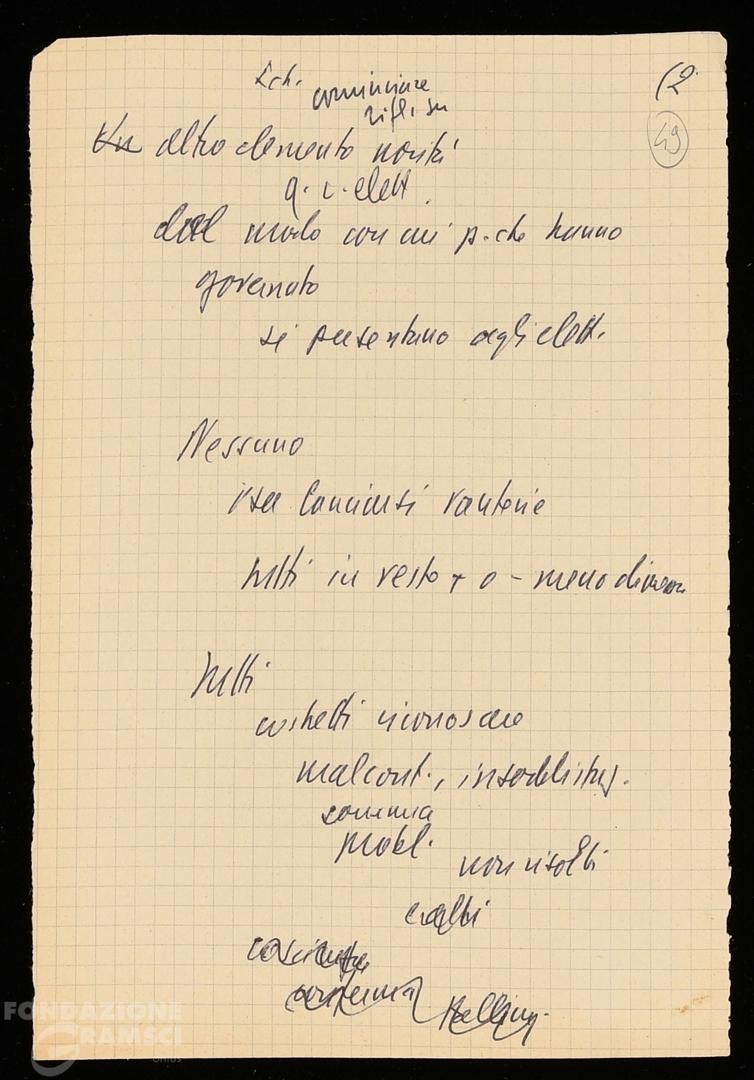 (2
49
cominciare
rifl. su
Un altro elemento novità
q. c. elett.
dal modo con cui p. che hanno
governato
si presentano agli elett.
Nessuno
osa lanciarsi vanterie
tutti in vesto + o - meno dimesse
Tutti
costretti riconoscere
malcont., insoddisfaz.
somma
probl.
non risolti
scelti
FONDAZIONE
GRAMSCI
onlus